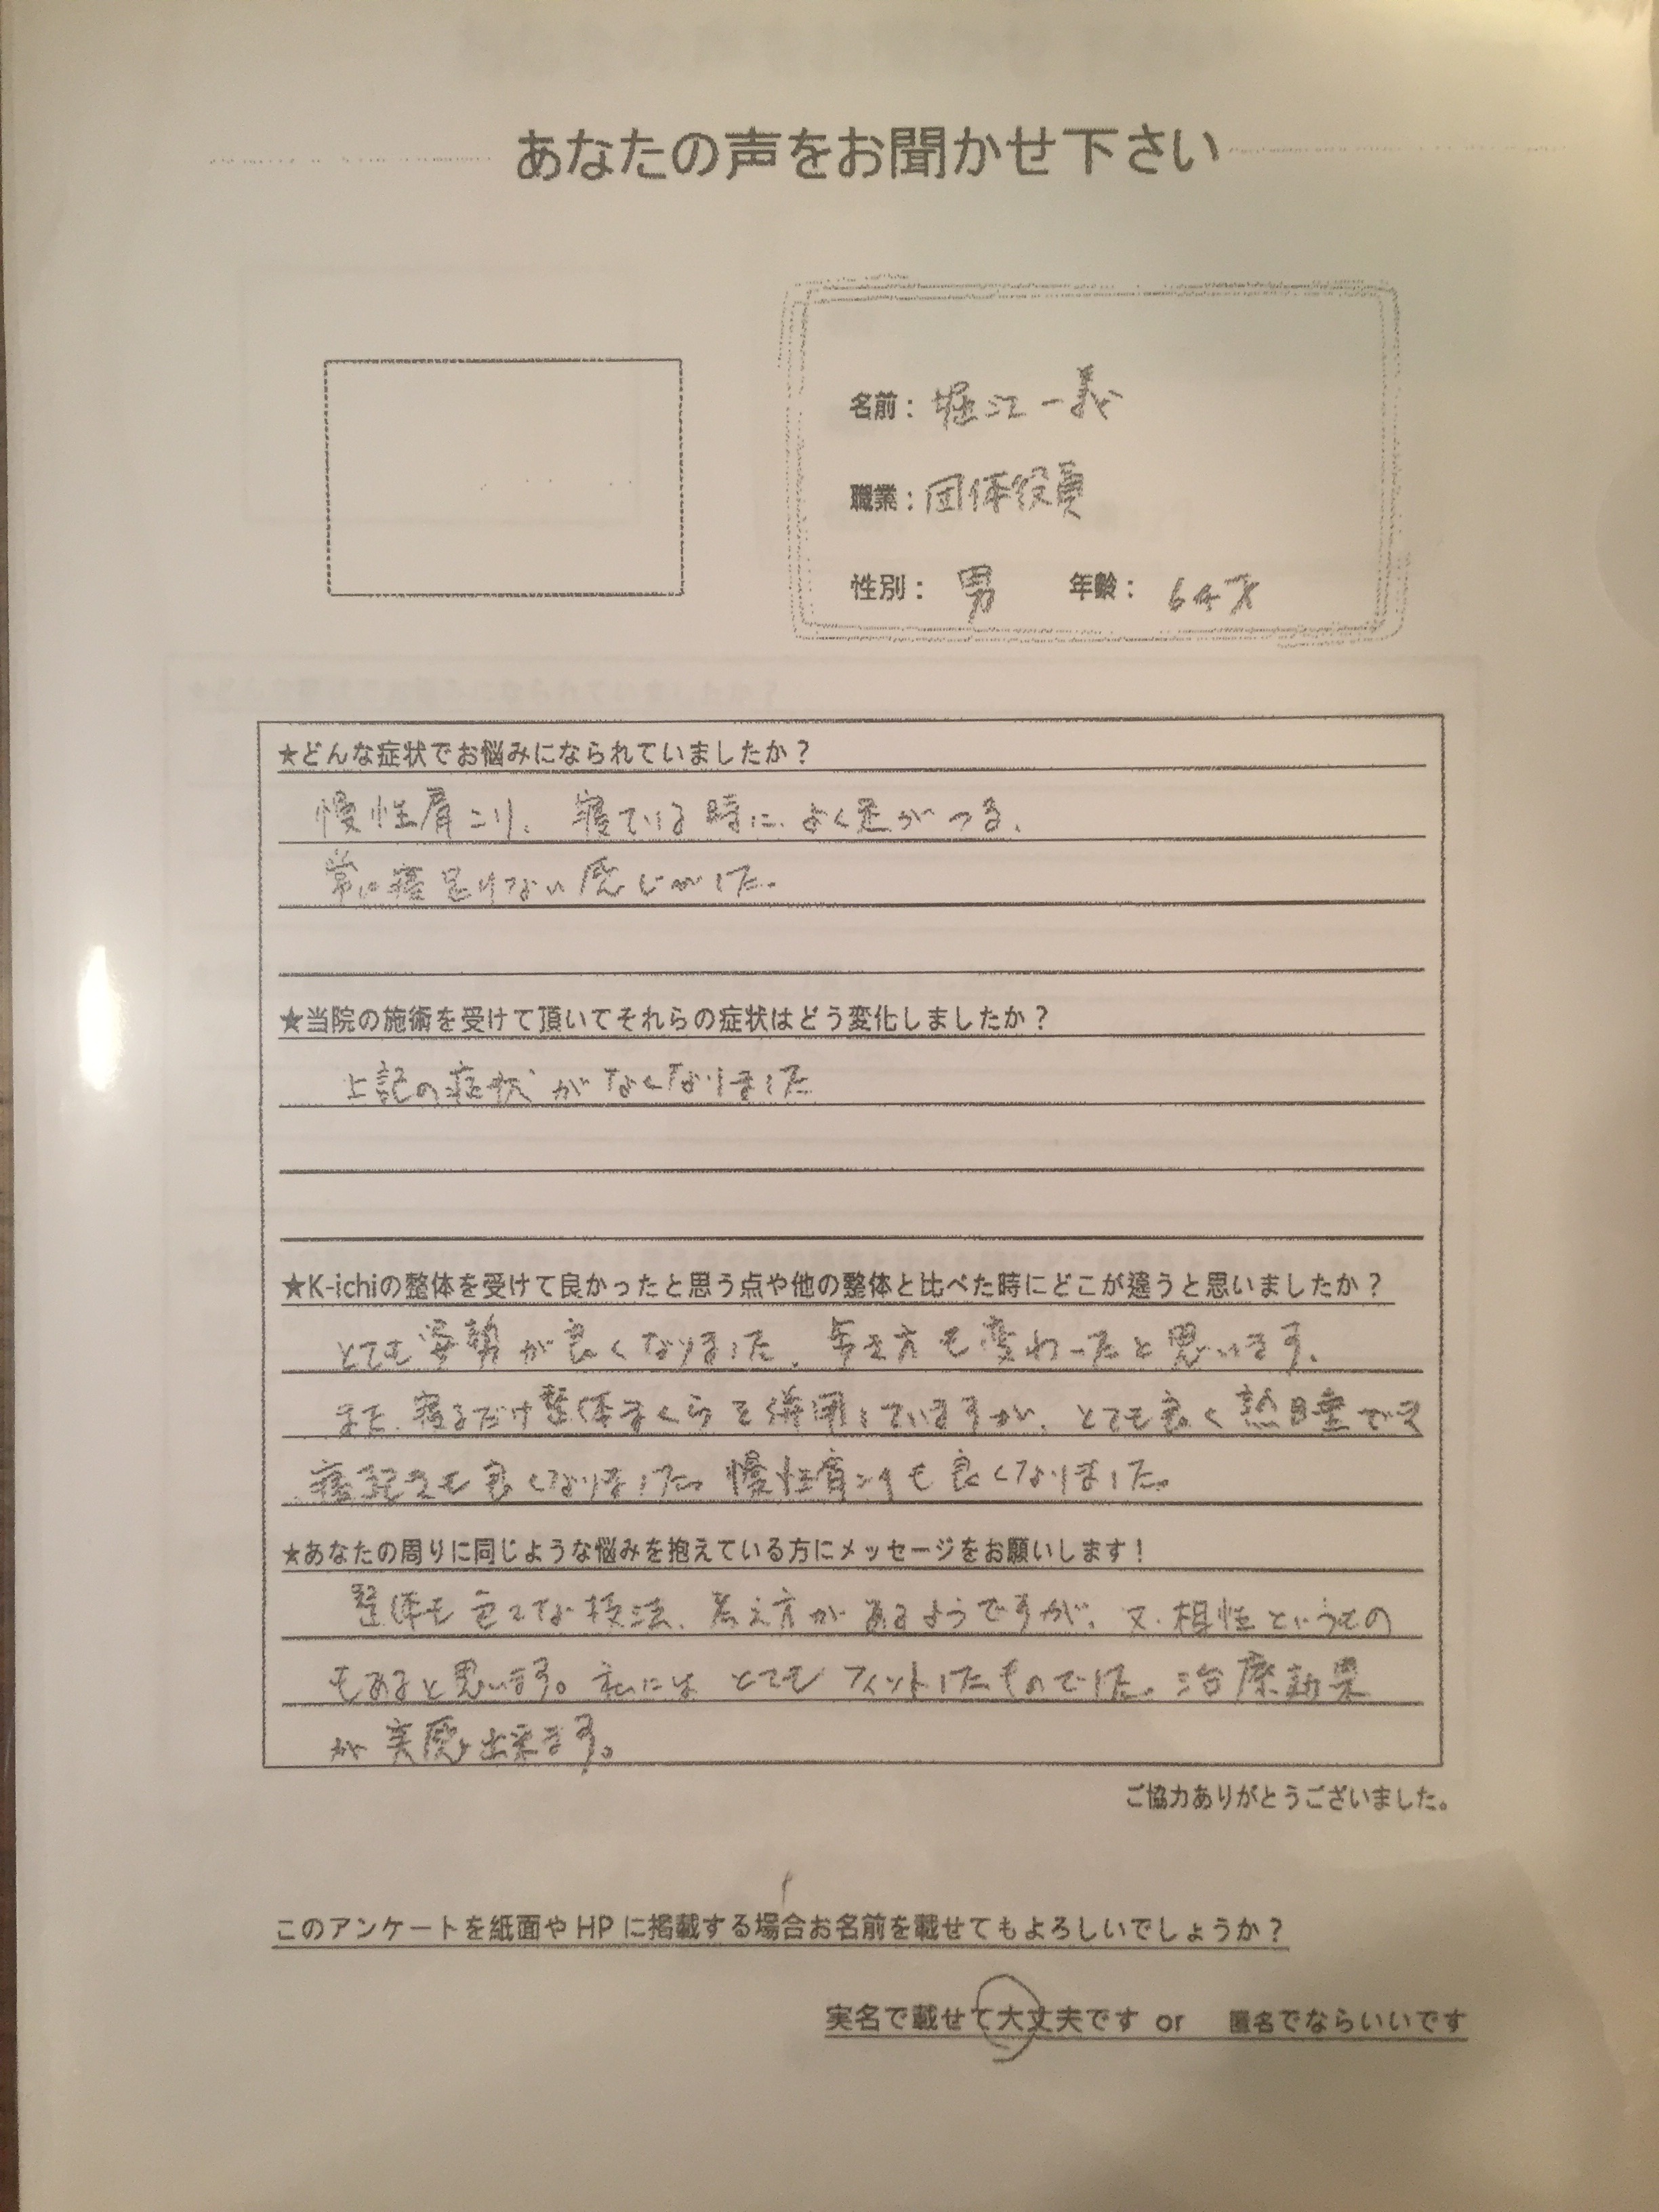 あなたの声をお聞かせ下さい
名前：堀江一義
職業：団体役員
性別： 男 年齢： 64才
★どんな症状でお悩みになられていましたか？
慢性肩こり、寝ている時に、よく足がつる、
常に寝足りない感じがした。
★当院の施術を受けて頂いてそれらの症状はどう変化しましたか？
上記の症状がなくなりました
★K-ichiの整体を受けて良かったと思う点や他の整体と比べた時にどこが違うと思いましたか？
とても姿勢が良くなりました、歩き方も変わったと思います。
また、寝るだけ整体まくらを併用していますが、とても良く熟睡でき
寝起きも良くなりました。慢性肩こりも良くなりました。
★あなたの周りに同じような悩みを抱えている方にメッセージをお願いします！
整体も色々な技法、考え方があるようですが、又、相性というもの
もあると思います。私にはとてもフィットしたものでした。治療効果
が実感出来ます。
ご協力ありがとうございました。
このアンケートを紙面やHPに掲載する場合お名前を載せてもよろしいでしょうか？
実名で載せて大丈夫です or 匿名でならいいです